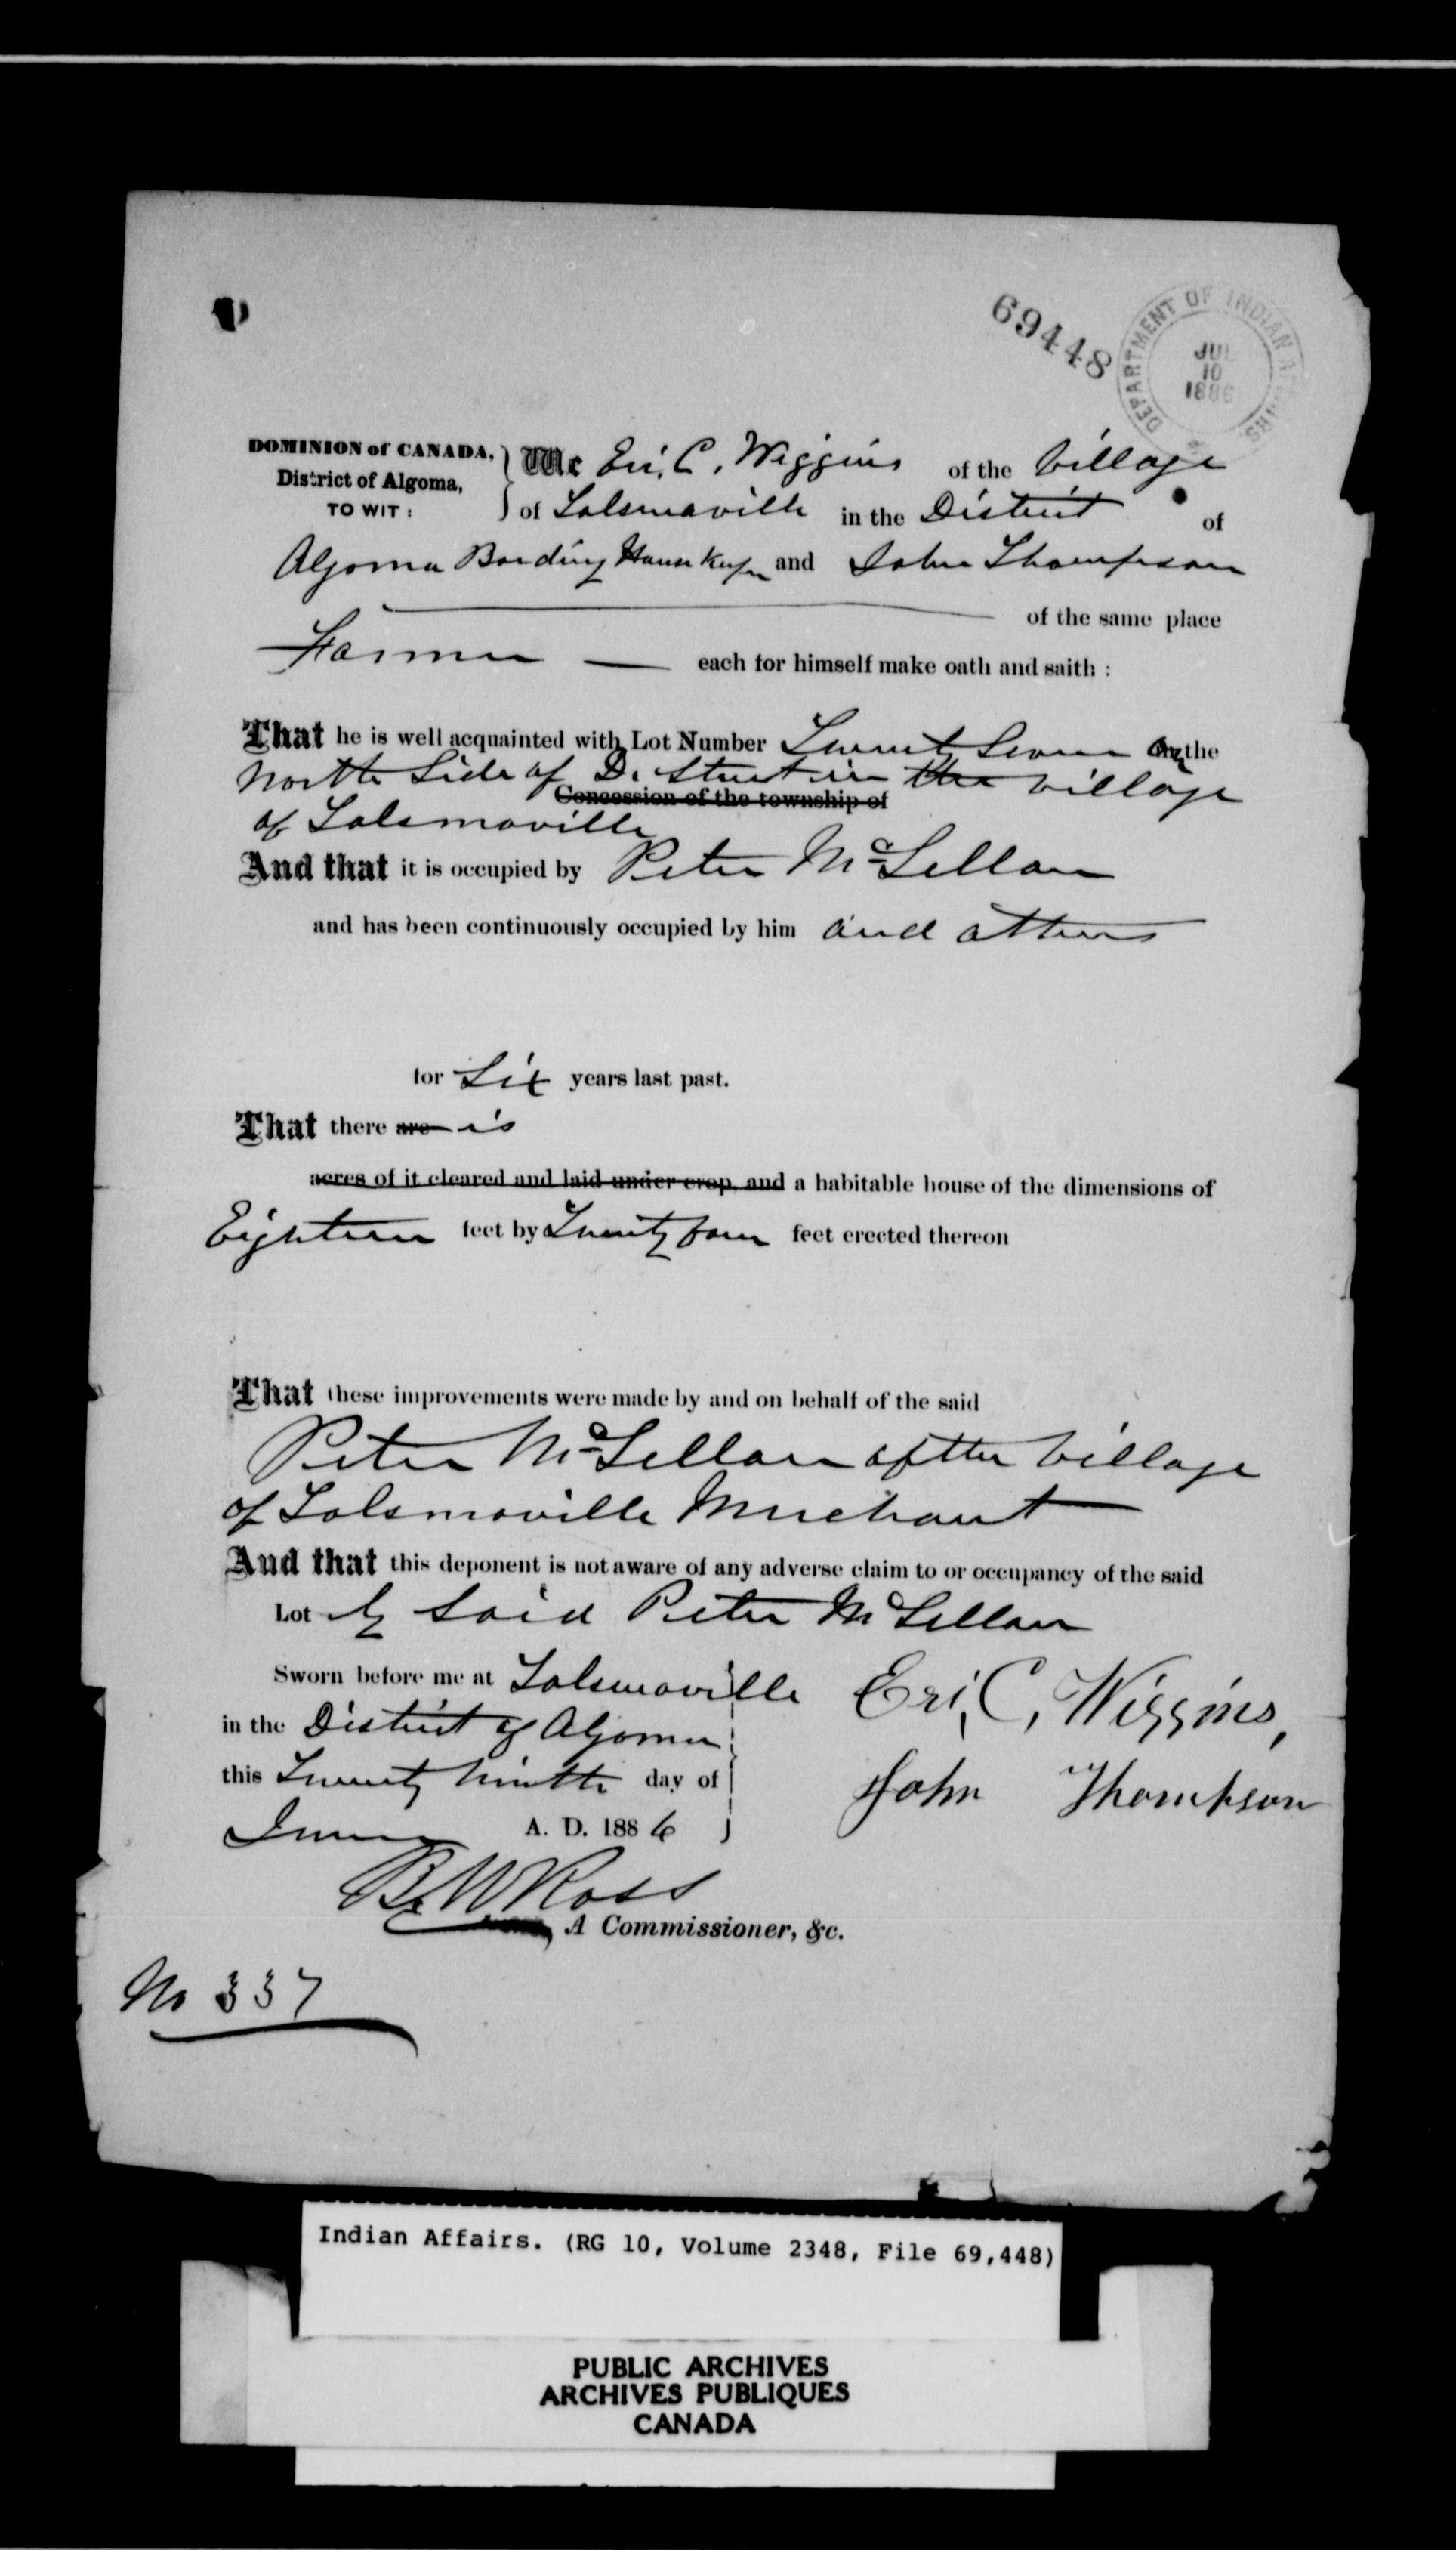 69448
DEPARTMENT OF INDIAN AFFAIRS
JUL
10
1886
DOMINION of CANADA,
District of Algoma,
TO WIT:
We Eri, C. Wiggins of the Village
of Tolsmaville in the District of
Algoma Boarding House Keeper and John Thompson
of the same place
Farmer each for himself make oath and saith:
That he is well acquainted with Lot Number Twenty Seven On the
North Side of D. Street in the Village
Concession of the township of
of Tolsmaville
And that it is occupied by Peter McLellan
and has been continuously occupied by him and others
for Six years last past.
That there are is
acres of it cleared and laid under crop, and a habitable house of the dimensions of
Eighteen feet by Twenty four feet erected thereon
That these improvements were made by and on behalf of the said
Peter McLellan of the Village
of Tolsmaville Merchant
And that this deponent is not aware of any adverse claim to or occupancy of the said
Lot by Said Peter McLellan
Sworn before me at Tolsmaville
in the District of Algoma
this Twenty Ninth day of
June A. D. 1886
Eri, C, Wiggins,
John Thompson
B W Ross
A Commissioner, &c.
No 337
Indian Affairs. (RG 10, Volume 2348, File 69,448)
PUBLIC ARCHIVES
ARCHIVES PUBLIQUES
CANADA